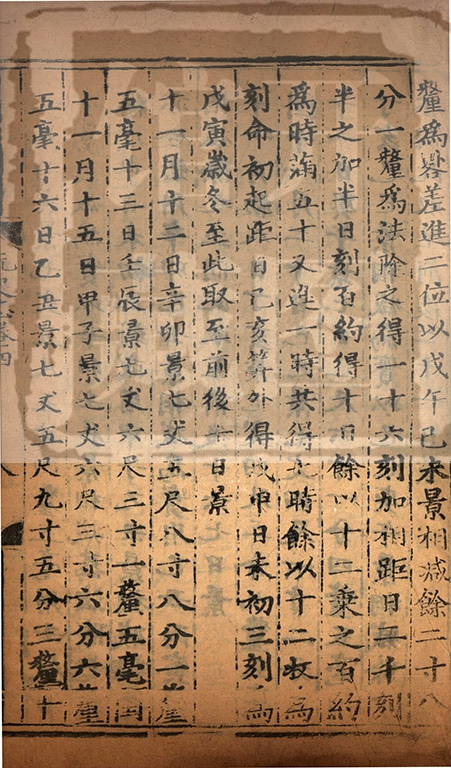 釐爲晷差進二位以戊午己未景相減餘二寸八
分一釐爲法除之得一十六刻加相距日二千刻
半之加半日刻百約得十日餘以十二乗之百約
爲時滿五十又進一時共得七時餘以十二收爲
刻命初起距日己亥筭外得戊申日未初三刻爲
戊寅嵗冬至此取至前後十七日景
十一月十二日辛卯景七丈五尺八寸八分一釐
五毫十三日壬辰景七丈六尺三寸一釐五毫閏
十一月十五日甲子景七丈六尺三寸六分六釐
五毫十六日乙丑景七丈五尺九寸五分三釐十